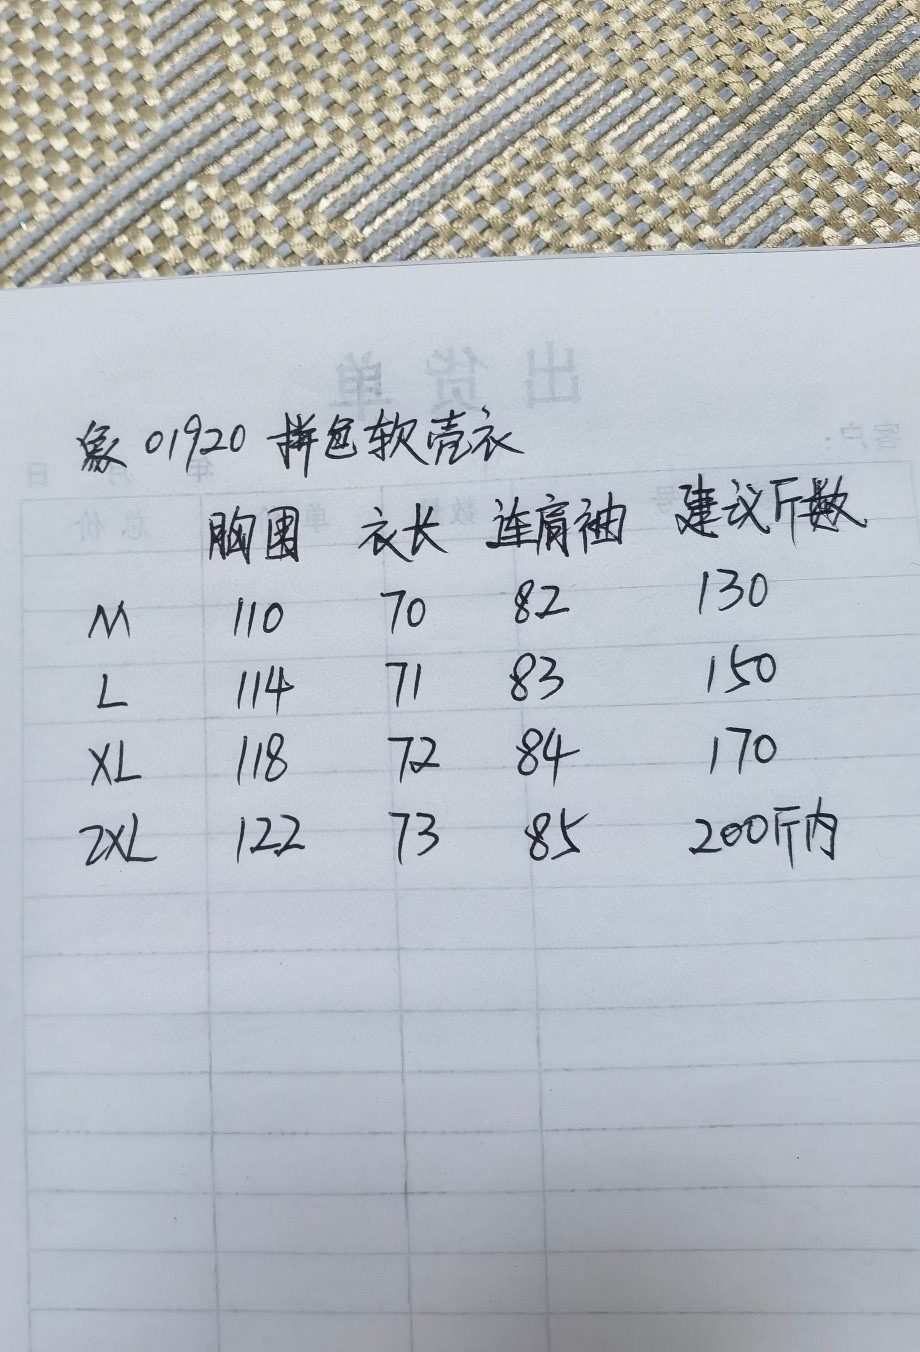 出货单
客户:
年 月 日
象 01920 拼色软壳衣
胸围 衣长 连肩袖 建议斤数
M 110 70 82 130
L 114 71 83 150
XL 118 72 84 170
2XL 122 73 85 200斤内